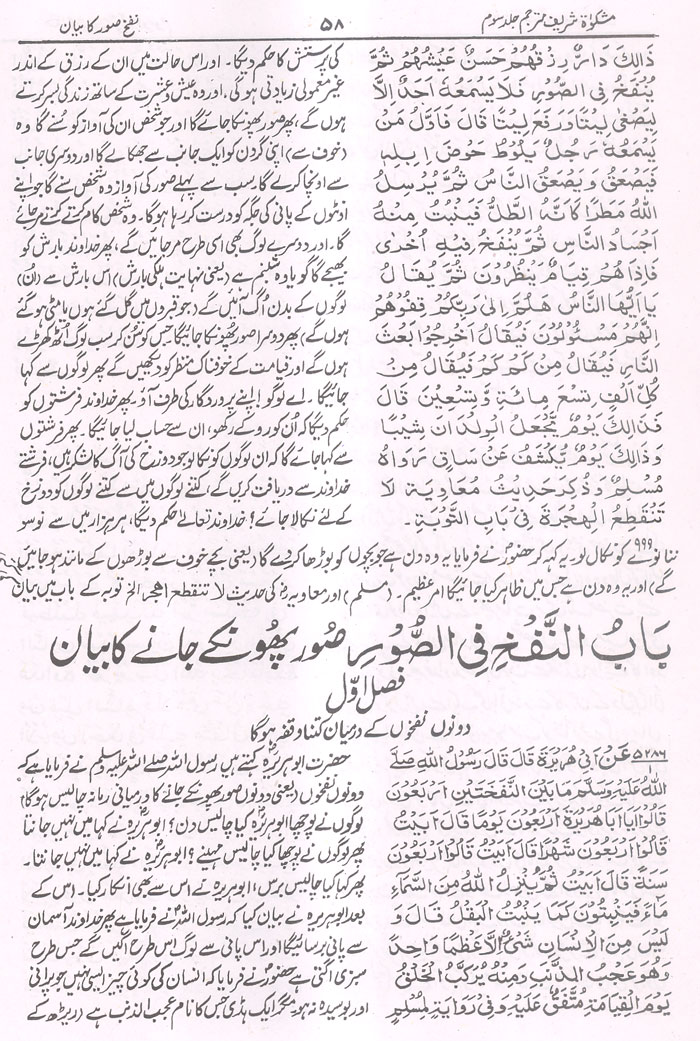 مشکوٰۃ شریف مترجم جلد سوم
۵۸
نفخ صور کا بیان
ذَالِكَ دَارٌّ رِزْقُهُمْ حَسَنٌ عَيْشُهُمْ ثُمَّ
يُنْفَخُ فِي الصُّوْرِ فَلَا يَسْمَعُهُ اَحَدٌ اِلَّا
لِيَصْغٰى لِيْتًا وَرَفَعَ لِيْتًا قَالَ فَاَوَّلُ مَنْ
يَسْمَعُهُ رَجُلٌ يَلُوْطُ حَوْضَ اِبِلِهٖ
فَيَصْعَقُ وَيَصْعَقُ النَّاسُ ثُمَّ يُرْسِلُ
اللهُ مَطَرًا كَاَنَّهُ الطَّلُّ فَيَنْبُتُ مِنْهُ
اَجْسَادُ النَّاسِ ثُمَّ يُنْفَخُ فِيْهِ اُخْرٰى
فَاِذَا هُمْ قِيَامٌ يَنْظُرُوْنَ ثُمَّ يُقَالُ
يَا اَيُّهَا النَّاسُ هَلُمَّ اِلٰى رَبِّكُمْ قِفُوْهُمْ
اِنَّهُمْ مَسْئُوْلُوْنَ فَيُقَالُ اَخْرِجُوْا بَعْثَ
النَّارِ فَيُقَالُ مِنْ كَمْ كَمْ فَيُقَالُ مِنْ
كُلِّ اَلْفٍ تِسْعَ مِائَةٍ وَّتِسْعِيْنَ قَالَ
فَذَالِكَ يَوْمٌ يَّجْعَلُ الْوِلْدَانَ شِيْبًا
وَذَالِكَ يَوْمَ يُكْشَفُ عَنْ سَاقٍ رَوَاهُ
مُسْلِمٌ وَذُكِرَ حَدِيْثُ مُعَاوِيَةَ لَا
تَنْقَطِعُ الْهِجْرَةُ فِيْ بَابِ التَّوْبَةِ۔
کی پرستش کا حکم دیگا۔ اور اس حالت میں ان کے رزق کے اندر
غیر معمولی زیادتی ہوگی۔ اور وہ عیش و عشرت کے ساتھ زندگی بسر کرتے
ہوں گے، پھر صور پھونکا جائے گا اور جو شخص ان کی آواز کو سُنے گا وہ
(خوف سے) اپنی گردن کو ایک جانب سے جھکا لے گا اور دوسری جانب
سے اونچا کرے گا۔ سب سے پہلے صور کی آواز وہ شخص سنے گا جو اپنے
اونٹوں کے پانی کی جگہ کو درست کر رہا ہوگا۔ وہ شخص کام کرتے کرتے مر جائے
گا۔ اور دوسرے لوگ بھی اسی طرح مر جائیں گے، پھر خداوند بارش کو
بھیجے گا گویا وہ شبنم ہے (یعنی نہایت ہلکی بارش) اس بارش سے (ان)
لوگوں کے بدن اُگ آئیں گے (جو قبروں میں گل گئے ہوں یا مٹی ہو گئے
ہوں گے) پھر دوسرا صور پھونکا جائیگا جس کو سن کر سب لوگ اٹھ کھڑے
ہوں گے اور قیامت کے خوفناک منظر کو دیکھیں گے پھر لوگوں سے کہا
جائیگا۔ اے لوگو! اپنے پروردگار کی طرف آؤ۔ پھر خداوند فرشتوں کو
حکم دیگا کہ اُن کو روکے رکھو، ان سے حساب لیا جائیگا۔ پھر فرشتوں
سے کہا جائے گا کہ ان لوگوں کو نکالو جو دوزخ کی آگ کا لشکر ہیں، فرشتے
خداوند سے دریافت کریں گے، کتنے لوگوں میں سے کتنے لوگوں کو دوزخ
کے لئے نکالا جائے؟ خداوند تعالےٰ حکم دیگا، ہر ہزار میں سے نو سو
ننانوے ۹۹۹ کو نکال لو۔ یہ کہہ کر حضورؐ نے فرمایا یہ وہ دن ہے جو بچوں کو بوڑھا کر دے گا (یعنی بچے خوف سے بوڑھوں کے مانند ہو جائیں
گے) اور یہ وہ دن ہے جس میں ظاہر کیا جائیگا امر عظیم۔ (مسلم) اور معاویہؓ کی حدیث لا تنقطع الھجرۃ الخ توبہ کے باب میں بیان
بَابُ النَّفْخِ فِي الصُّوْرِ صُور پھُونکے جانے کا بیان
فصل اوّل
دونوں نفخوں کے درمیان کتنا وقفہ ہوگا
۵۲۸۶/۱ عَنْ اَبِيْ هُرَيْرَةَ قَالَ قَالَ رَسُوْلُ اللهِ صَلَّى
اللهُ عَلَيْهِ وَسَلَّمَ مَا بَيْنَ النَّفْخَتَيْنِ اَرْبَعُوْنَ
قَالُوْا يَا اَبَا هُرَيْرَةَ اَرْبَعُوْنَ يَوْمًا قَالَ اَبَيْتُ
قَالُوْا اَرْبَعُوْنَ شَهْرًا قَالَ اَبَيْتُ قَالُوْا اَرْبَعُوْنَ
سَنَةً قَالَ اَبَيْتُ ثُمَّ يُنْزِلُ اللهُ مِنَ السَّمَاءِ
مَاءً فَيَنْبُتُوْنَ كَمَا يَنْبُتُ الْبَقْلُ قَالَ وَ
لَيْسَ مِنَ الْاِنْسَانِ شَيْءٌ اِلَّا عَظْمًا وَاحِدًا
وَهُوَ عَجْبُ الذَّنَبِ وَمِنْهُ يُرَكَّبُ الْخَلْقُ
يَوْمَ الْقِيَامَةِ مُتَّفَقٌ عَلَيْهِ وَفِيْ رِوَايَةٍ لِمُسْلِمٍ
حضرت ابو ہریرہؓ کہتے ہیں رسول اللہ صلے اللہ علیہ وسلم نے فرمایا ہے کہ
دونوں نفخوں (یعنی دونوں صور پھونکے جانے کا درمیانی زمانہ چالیس ہوگا)
لوگوں نے پوچھا ابو ہریرہؓ کیا چالیس دن؟ ابو ہریرہؓ نے کہا میں نہیں جانتا
پھر لوگوں نے پوچھا کیا چالیس مہینے؟ ابو ہریرہؓ نے کہا میں نہیں جانتا۔
پھر کہا کیا چالیس برس، ابو ہریرہ نے اس سے بھی انکار کیا۔ اس کے
بعد ابو ہریرہ نے بیان کیا کہ رسول اللہؐ نے فرمایا ہے پھر خداوند آسمان
سے پانی برسائیگا اور اس پانی سے لوگ اس طرح اگیں گے جس طرح
سبزی اُگتی ہے حضورؐ نے فرمایا کہ انسان کی کوئی چیز ایسی نہیں جو پرانی
اور بوسیدہ نہ ہو مگر ایک ہڈی جس کا نام عجب الذنب ہے (ریڑھ کے